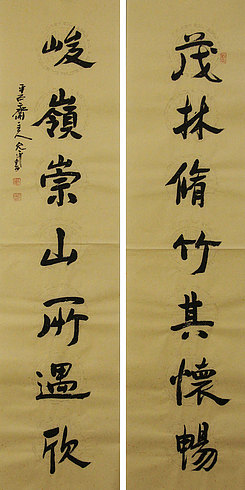 茂林脩竹其懷暢
峻嶺崇山所遇欣